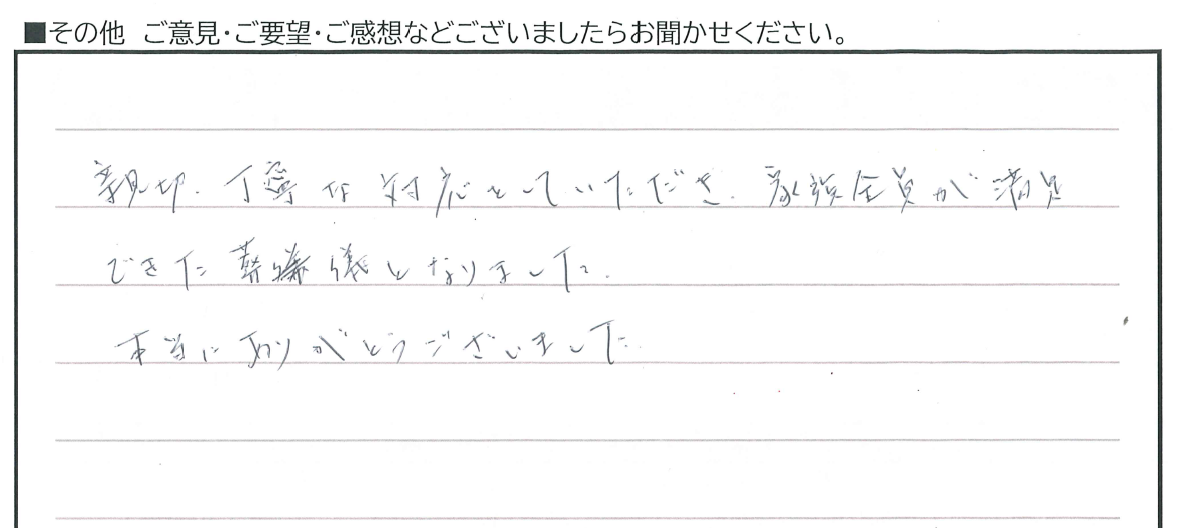 ■その他 ご意見・ご要望・ご感想などございましたらお聞かせください。
親切、丁寧な対応をしていただき、家族全員が満足
できた葬儀となりました。
本当にありがとうございました。